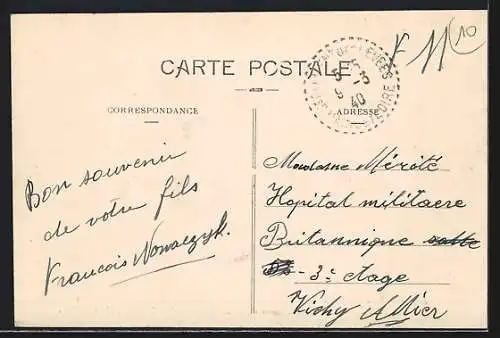 CARTE POSTALE
CORRESPONDANCE
ADRESSE
5-3
40
LOIRE
Bon souvenir
de votre fils
Francois Nowaczyk.
Madame Mérité
Hopital militaere
Britannique
3e étage
Vichy Allier
10